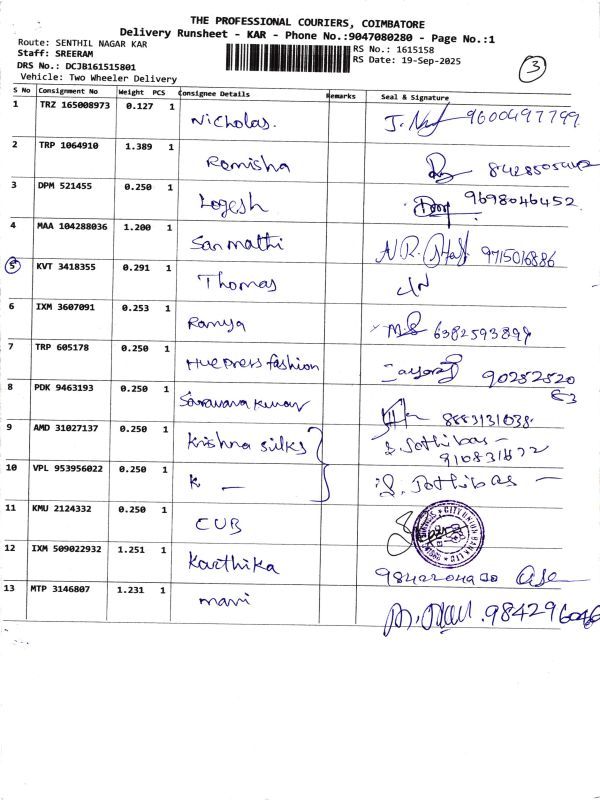 THE PROFESSIONAL COURIERS, COIMBATORE
Delivery Runsheet - KAR - Phone No.:9047080280 - Page No.:1
Route: SENTHIL NAGAR KAR
RS No.: 1615158
Staff: SREERAM
RS Date: 19-Sep-2025
DRS No.: DCJB161515801
Vehicle: Two Wheeler Delivery
3
S No Consignment No Weight PCS Consignee Details Remarks Seal & Signature
1 TRZ 165008973 0.127 1 Nicholas. 9600497799
2 TRP 1064910 1.389 1 Ramisha
3 DPM 521455 0.250 1 Logesh 9698046452
4 MAA 104288036 1.200 1 Sanmathi 9715016886
5 KVT 3418355 0.291 1 Thomas
6 IXM 3607091 0.253 1 Ramya 6382593899
7 TRP 605178 0.250 1 Huepress fashion 90252520
63
8 PDK 9463193 0.250 1 Saravana kumar 8883131038
9 AMD 31027137 0.250 1 Krishna silks S. Jothibas -
10 VPL 953956022 0.250 1 K — S. Jothibas —
11 KMU 2124332 0.250 1 CUB
CITY UNION BANK
12 IXM 509022932 1.251 1 Karthika
13 MTP 3146807 1.231 1 mani 984296046